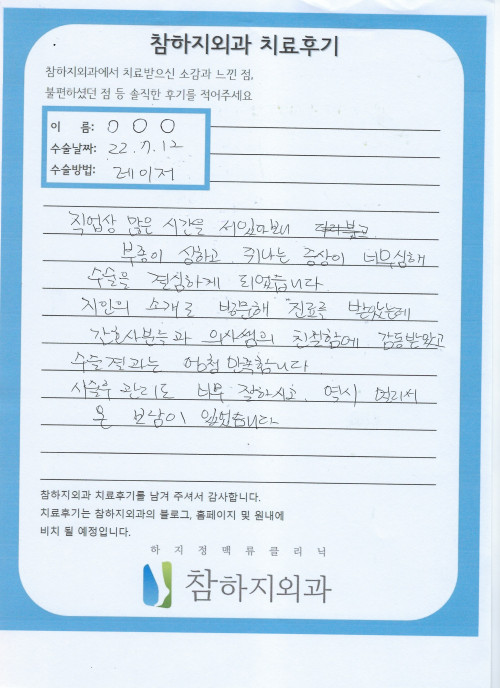 참하지외과 치료후기
참하지외과에서 치료받으신 소감과 느낀 점,
불편하셨던 점 등 솔직한 후기를 적어주세요
이 름: O O O
수술날짜: 22. 7. 12
수술방법: 레이저
직업상 많은 시간을 서있다보니
부종이 심하고, 쥐나는 증상이 너무심해
수술을 결심하게 되었습니다
지인의 소개로 방문해 진료를 받았는데
간호사분들과 의사쌤의 친절함에 감동받았고
수술결과는 엄청 만족합니다
시술후 관리도 너무 잘하시고, 역시 멀리서
온 보람이 있었습니다
참하지외과 치료후기를 남겨 주셔서 감사합니다.
치료후기는 참하지외과의 블로그, 홈페이지 및 원내에
비치 될 예정입니다.
하 지 정 맥 류 클 리 닉
참하지외과